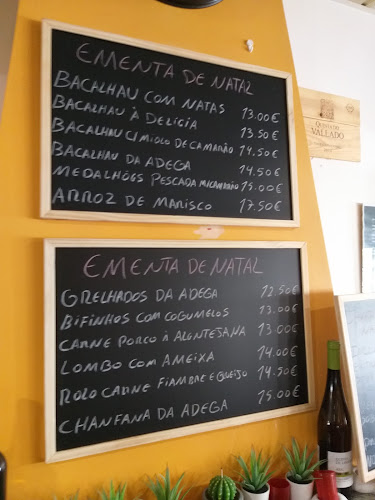 EMENTA DE NATAL
BACALHAU COM NATAS 13.00€
BACALHAU À DELICIA 13.50€
BACALHAU C/MIOLO DE CAMARÃO 14.50€
BACALHAU DA ADEGA 14.50€
MEDALHÕES PESCADA 15.00€
ARROZ DE MARISCO 17.50€
EMENTA DE NATAL
GRELHADOS DA ADEGA 12.50€
BIFINHOS COM COGUMELOS 13.00€
CARNE PORCO À ALENTEJANA 13.00€
LOMBO COM AMEIXA 14.00€
ROLO CARNE FIAMBRE E QUEIJO 14.50€
CHANFANA DA ADEGA 15.00€
QUINTA DO
VALLADO